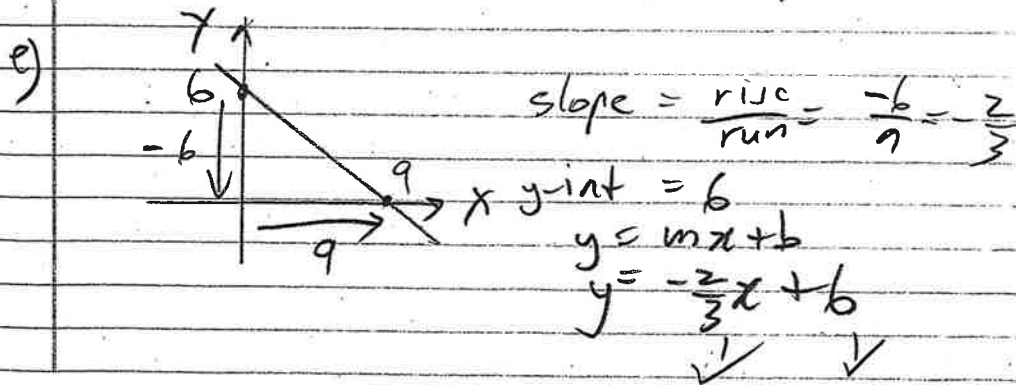 e)
y
6
-6
9
x
9
slope = rise/run = -6/9 = -2/3
y-int = 6
y = mx+b
y = -2/3x + 6
1 1